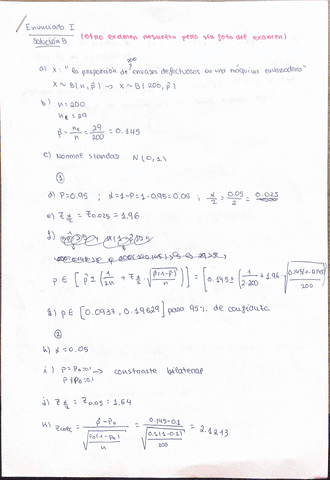 Enunciado I
Solución B (otro examen resuelto pero sin foto del examen)
nºo
a) X: "la proporción de envases defectuosos en una máquina envasadora"
X ~ B(n, p̂) → X ~ B(200, p̂)
b) n = 200
nE = 29
p̂ = nE/n = 29/200 = 0.145
c) Normal standar N(0,1)
①
d) P=0.95 ; α=1-P=1-0.95=0.05 ; α/2 = 0.05/2 = 0.025
e) Zα/2 = Z0.025 = 1.96
f)
p ∈ [p̂ ± (1/2n + Zα/2 · √(p̂(1-p̂)/n))] = [0.145 ± (1/2·200 + 1.96 · √(0.145(1-0.145)/200)
g) p ∈ [0.0937, 0.19629] para 95% de confianza
②
h) α = 0.05
i) P = P0 = 0.1 → constraste bilateral
P ≠ P0 = 0.1
j) Zα/2 = Z0.05 = 1.64
k) Zcalc = p̂ - P0 / √(P0(1-P0)/n) = 0.145-0.1 / √(0.1(1-0.1)/200) = 2.1213